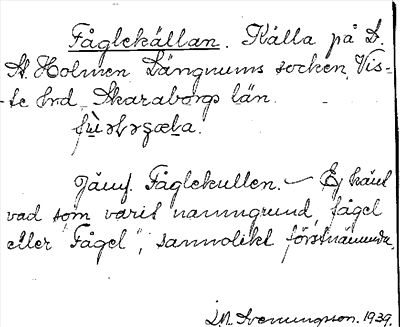 Fåglekällan. Källa på L.
St. Holmen Längnums socken, Vis-
te hrd Skaraborgs län.
Jämf. Fåglekullen. — Ej känt
vad som varit namngrund, "fågel
eller Fågel", sannolikt förstnämnda.
Svenungsson. 1939.